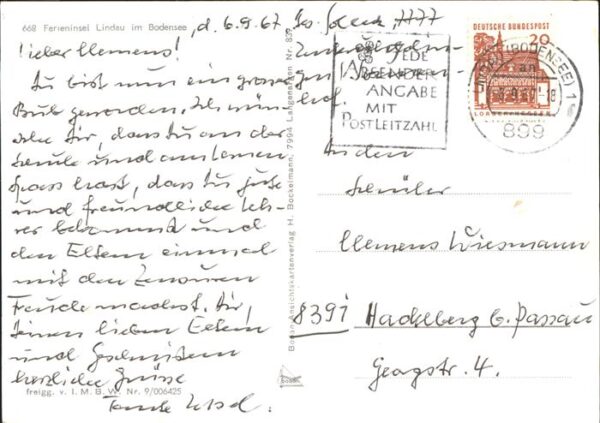 668 Ferieninsel Lindau im Bodensee
, d. 6.9.67
Lieber Klemens!
Du bist nun ein grosser
Bub geworden. Ich wün-
sche Dir, dass Du an der
Schule und am Lernen
Spass hast, dass Du gute
und freundliche Leh-
rer bekommst und
den Eltern einmal
mit den Zensuren
Freude machst. Dir,
Deinen lieben Eltern
und Geschwistern
herzliche Grüsse
Tante
freigg. v. I. M. B. W. Nr. 9/006425
Bosan Ansichtskartenverlag H. Bockelmann, 7994 Langenargen Nr. 839
JEDE
ABSENDER-
ANGABE
MIT
POSTLEITZAHL
DEUTSCHE BUNDESPOST
20
LINDAU (BODENSEE) 1
899
An den
Schüler
Klemens Wiesmann
8391 Hackelberg b. Passau
Georgstr. 4.